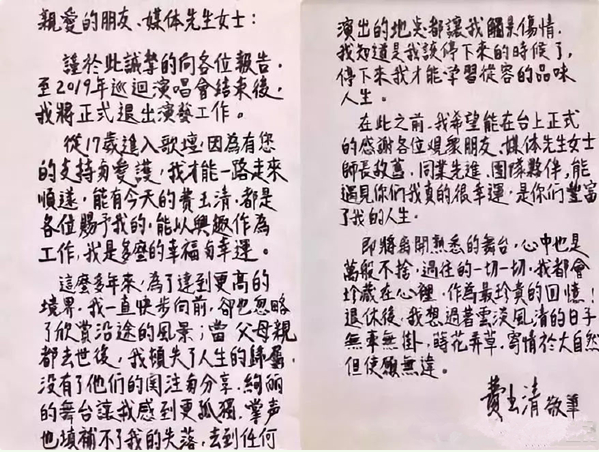 親愛的朋友、媒体先生女士：
謹於此誠摯的向各位報告，
至2019年巡迴演唱會結束後，
我將正式退出演藝工作。
從17歲進入歌壇，因為有您
的支持与愛護，我才能一路走來
順遂，能有今天的費玉清，都是
各位賜予我的，能以興趣作為
工作，我是多麼的幸福与幸運。
這麼多年來，為了達到更高的
境界，我一直快步向前，卻也忽略
了欣賞沿途的風景；當父母親
都去世後，我頓失了人生的歸屬，
没有了他們的関注与分享，絢丽
的舞台讓我感到更孤獨，掌声
也填補不了我的失落，去到任何
演出的地点都讓我觸景傷情，
我知道是我該停下來的時候了，
停下來我才能学習從容的品味
人生。
在此之前，我希望能在台上正式
的感謝各位観衆朋友、媒体先生女士
師長故舊、同業先進、團隊夥伴，能
遇見你們我真的很幸運，是你們豐富
了我的人生。
即將离開熟悉的舞台，心中也是
萬般不捨，過往的一切一切，我都會
珍藏在心裡，作為最珍貴的回憶！
退休後，我想過著雲淡風清的日子
無牽無掛，蒔花弄草，寄情於大自然
但使願無違。
費玉清 敬筆